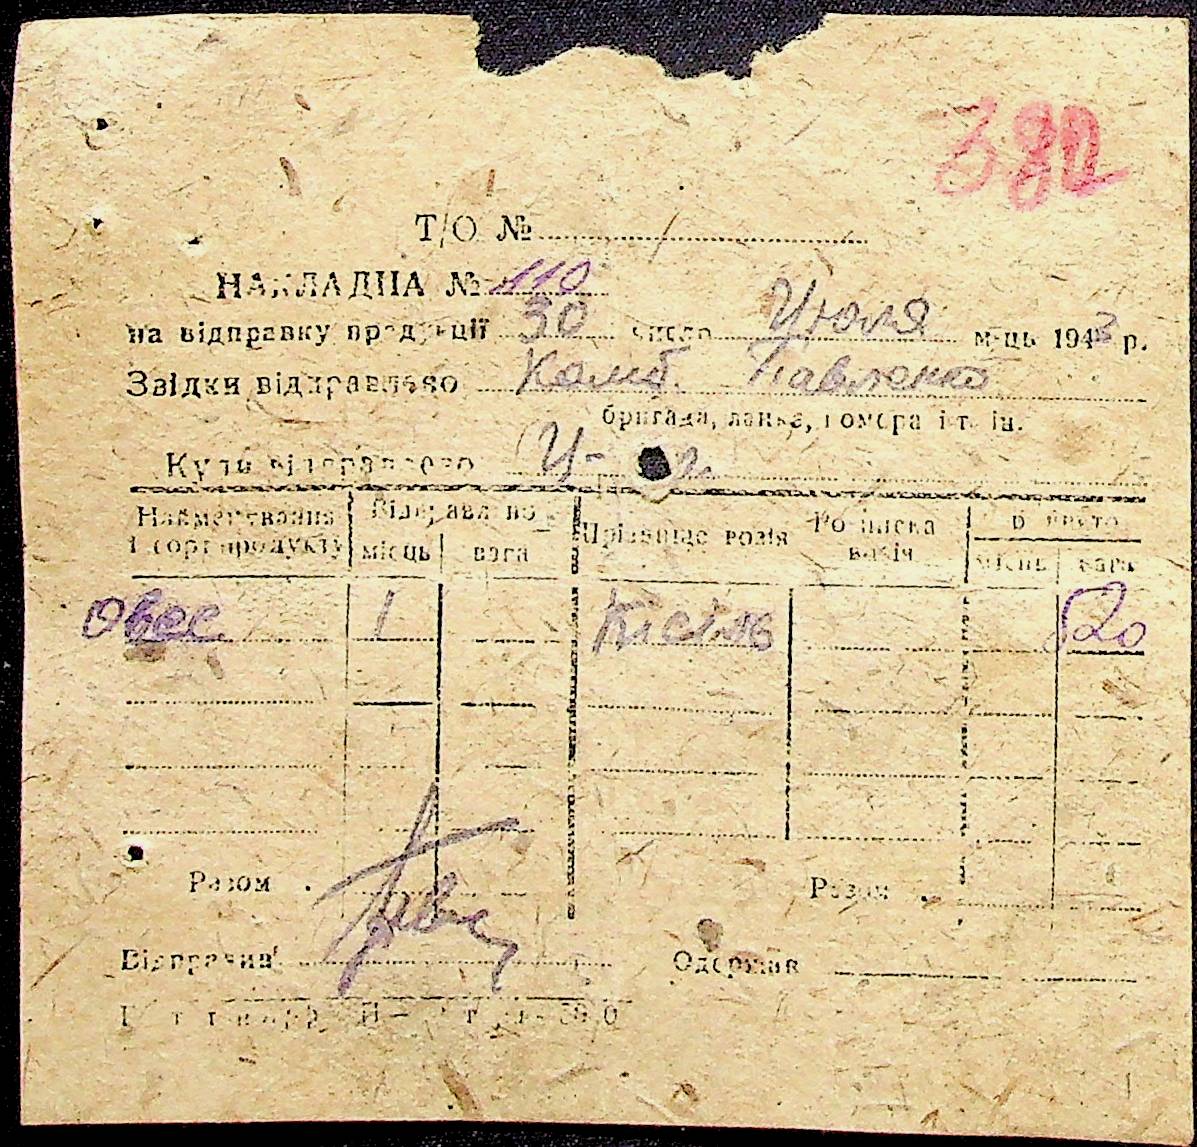 382
Т/О №
НАКЛАДНА № 110
на відправку продукції 30 число Июля м-ць 1943 р.
Звідки відправлено Комб. Павленко
бригада, ланка, комора і т. ін.
Куди відправлено
Найменування Відправлено Прізвище возія Розписка
і сорт продукту місць вага возія місць вага
Овес 1 Кисіль 520
Разом . Разом .
Відправив Одержав